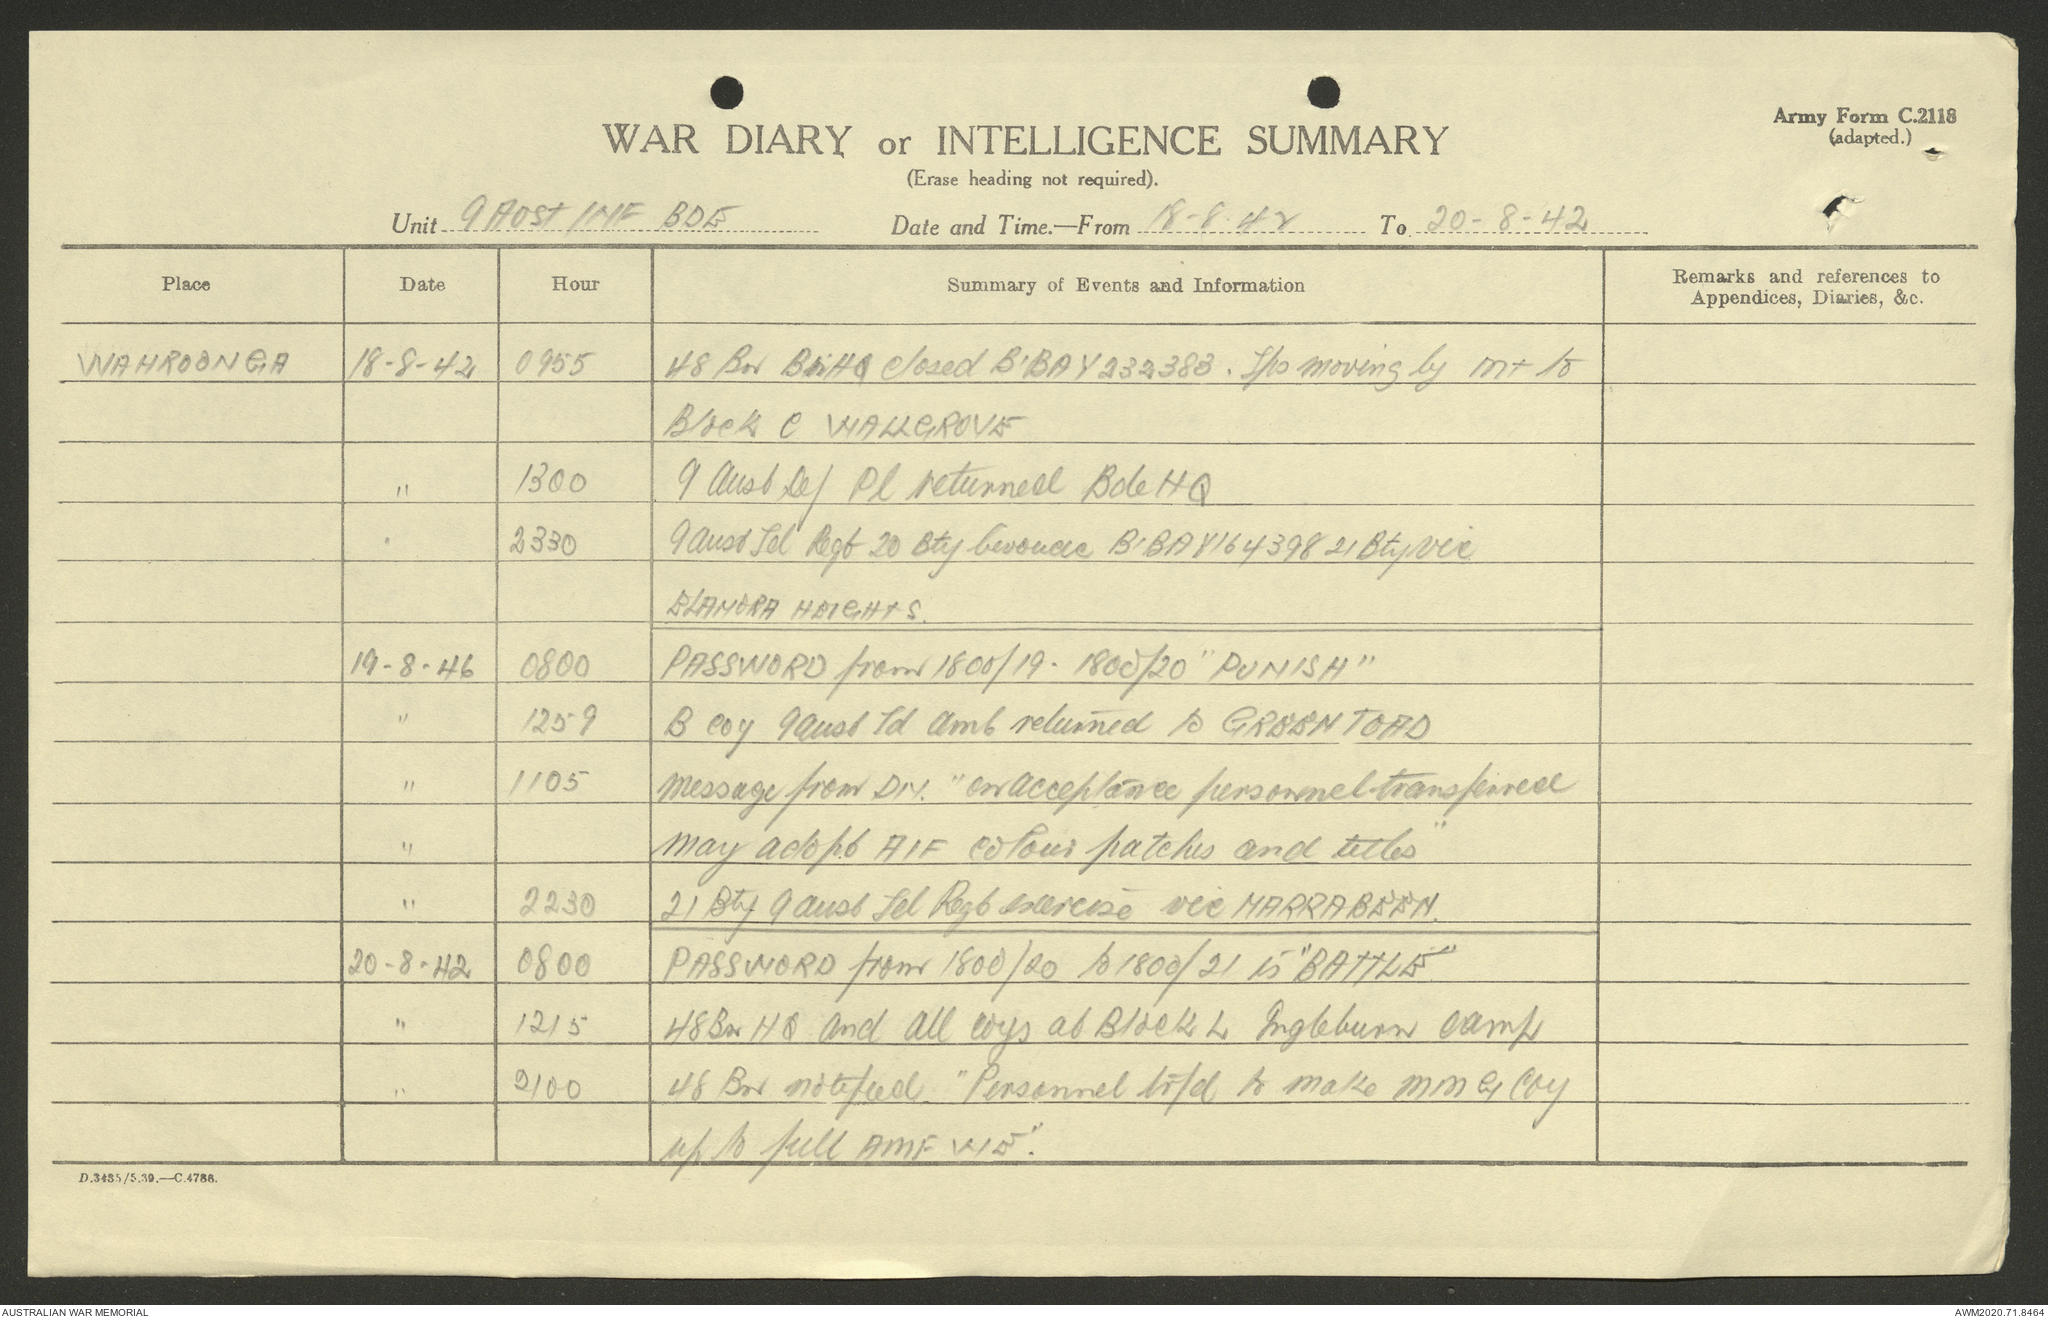 Army Form C.2118
(adapted.)
WAR DIARY or INTELLIGENCE SUMMARY
(Erase heading not required).
Unit 9 AUST INF BDE Date and Time.—From 18-8-42 To 20-8-42
Place Date Hour Summary of Events and Information Remarks and references to Appendices, Diaries, &c.
WAHROONGA 18-8-42 0955 48 Bn HQ closed B'BAY 232383. Tps moving by MT to
Block C WALLGROVE
" 1300 9 Aust Def Pl returned Bde HQ
" 2330 9 Aust Fd Regt 20 Bty bivouac B'BAY 164398 21 Bty vic
ELANORA HEIGHTS.
19-8-46 0800 PASSWORD from 1800/19 - 1800/20 "PUNISH"
" 1259 B Coy 9 Aust Fd Amb returned to GREEN TOAD
" 1105 Message from DIV. "on acceptance personnel transferred
" may adopt AIF colour patches and titles"
" 2230 21 Bty 9 Aust Fd Regt exercise vic NARRABEEN.
20-8-42 0800 PASSWORD from 1800/20 to 1800/21 is "BATTLE"
" 1215 48 Bn HQ and all coys at Block L Ingleburn Camp
" 2100 48 Bn notified "Personnel to make MMG Coy
up to full AMF WE".
D.3485/5.39.—C.4786.
AUSTRALIAN WAR MEMORIAL
AWM2020.71.8464